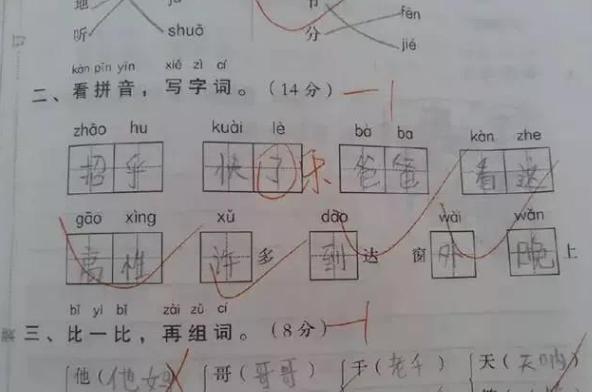 fēn
听 shuō 分 jié
kàn pīn yīn xiě zì cí
二、看拼音，写字词。（14分） —1
zhāo hu kuài lè bà ba kàn zhe
招乎 快了 乐 爸爸 看这
gāo xìng xǔ dào wài wǎn
高 许多 到达 窗外 晚上
bǐ yi bǐ zài zǔ cí
三、比一比，再组词。（8分） —1
他（他 哥（哥哥） 于（老 天（天呐）